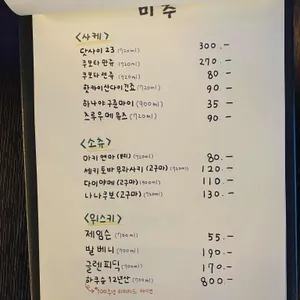 미주
<사케>
닷사이 23 (720ml) 300.-
쿠보타 만쥬 (720ml) 270.-
쿠보타 센쥬 (720ml) 80.-
핫카이산다이긴죠 (720ml) 90.-
하나야구쥰마이 (900ml) 35.-
즈루우메 유즈 (720ml) 90.-
<소츄>
아키엔마 (쌀) (720ml) 80.-
세키토바 무라사키 (고구마) (720ml) 120.-
다이야메 (고구마) (900ml) 110.-
나나쿠보 (고구마) (720ml) 130.-
<위스키>
제임슨 (700ml) 55.-
발베니 (700ml) 190.-
글렌피딕 (700ml) 170.-
하쿠슈 12년산 (700ml) 800.-
100주년